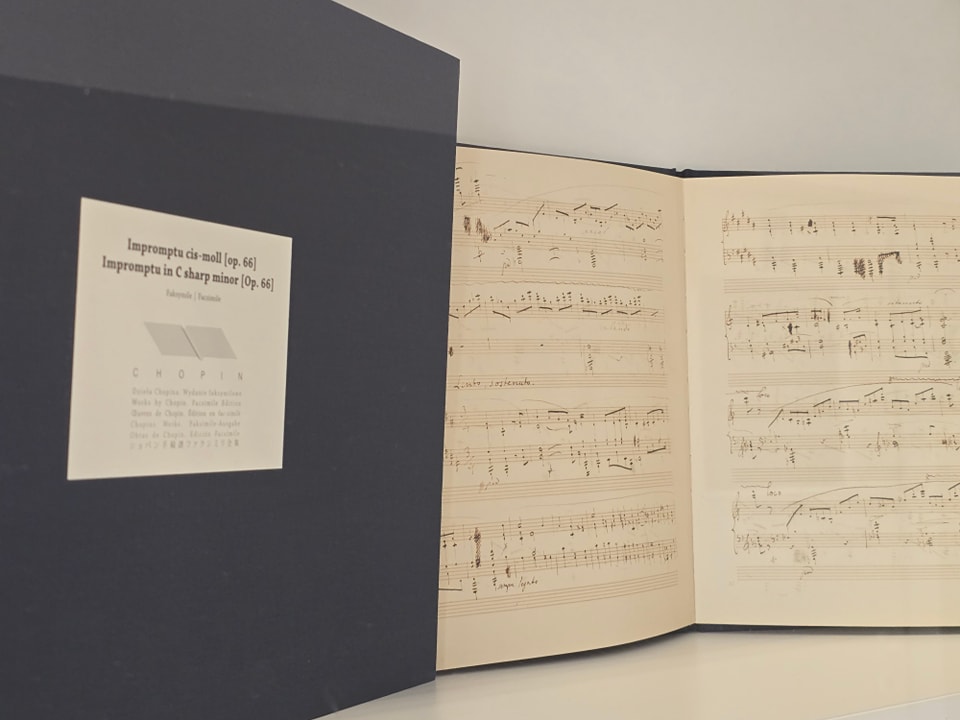 Impromptu cis-moll [op. 66]
Impromptu in C sharp minor [Op. 66]
Faksymile | Facsimile
CHOPIN
Dzieła Chopina. Wydanie faksymilowe
Works by Chopin. Facsimile Edition
Œuvres de Chopin. Édition en fac-similé
Chopins Werke. Faksimile-Ausgabe
Obras de Chopin. Edición Facsímile
ショパン
Lento sostenuto.